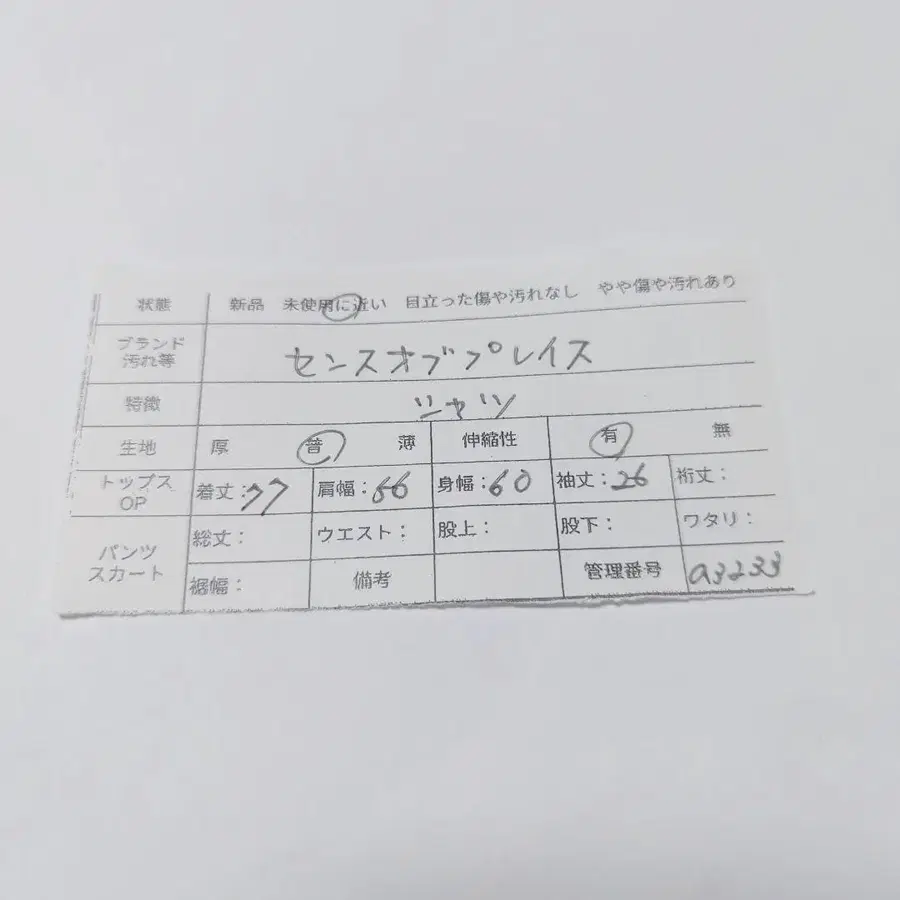 状態 新品 未使用に近い 目立った傷や汚れなし やや傷や汚れあり
ブランド
汚れ等 センスオブプレイス
特徴 シャツ
生地 厚 普 薄 伸縮性 有 無
トップス
OP 着丈:77 肩幅:56 身幅:60 袖丈:26 裄丈:
パンツ
スカート 総丈: ウエスト: 股上: 股下: ワタリ:
裾幅: 備考 管理番号 a3233